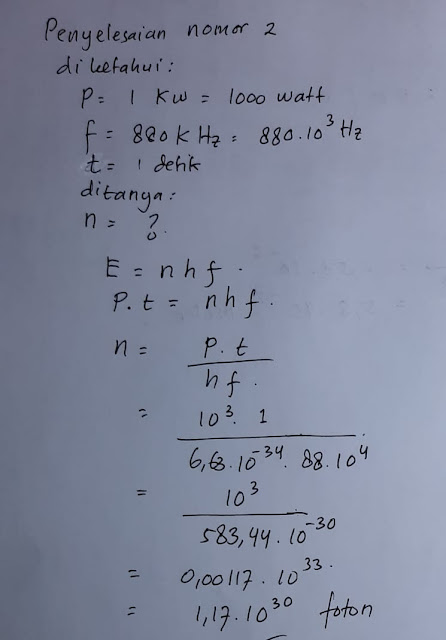 Penyelesaian nomor 2
diketahui:
P = 1 KW = 1000 watt
f = 880 k Hz = 880.10³ Hz
t = 1 detik
ditanya:
n = ?
E = n h f.
P.t = n h f.
n = P.t
h f.
= 10³. 1
6,63.10⁻³⁴. 88.10⁴
= 10³
583,44.10⁻³⁰
= 0,00117.10³³.
= 1,17.10³⁰ foton